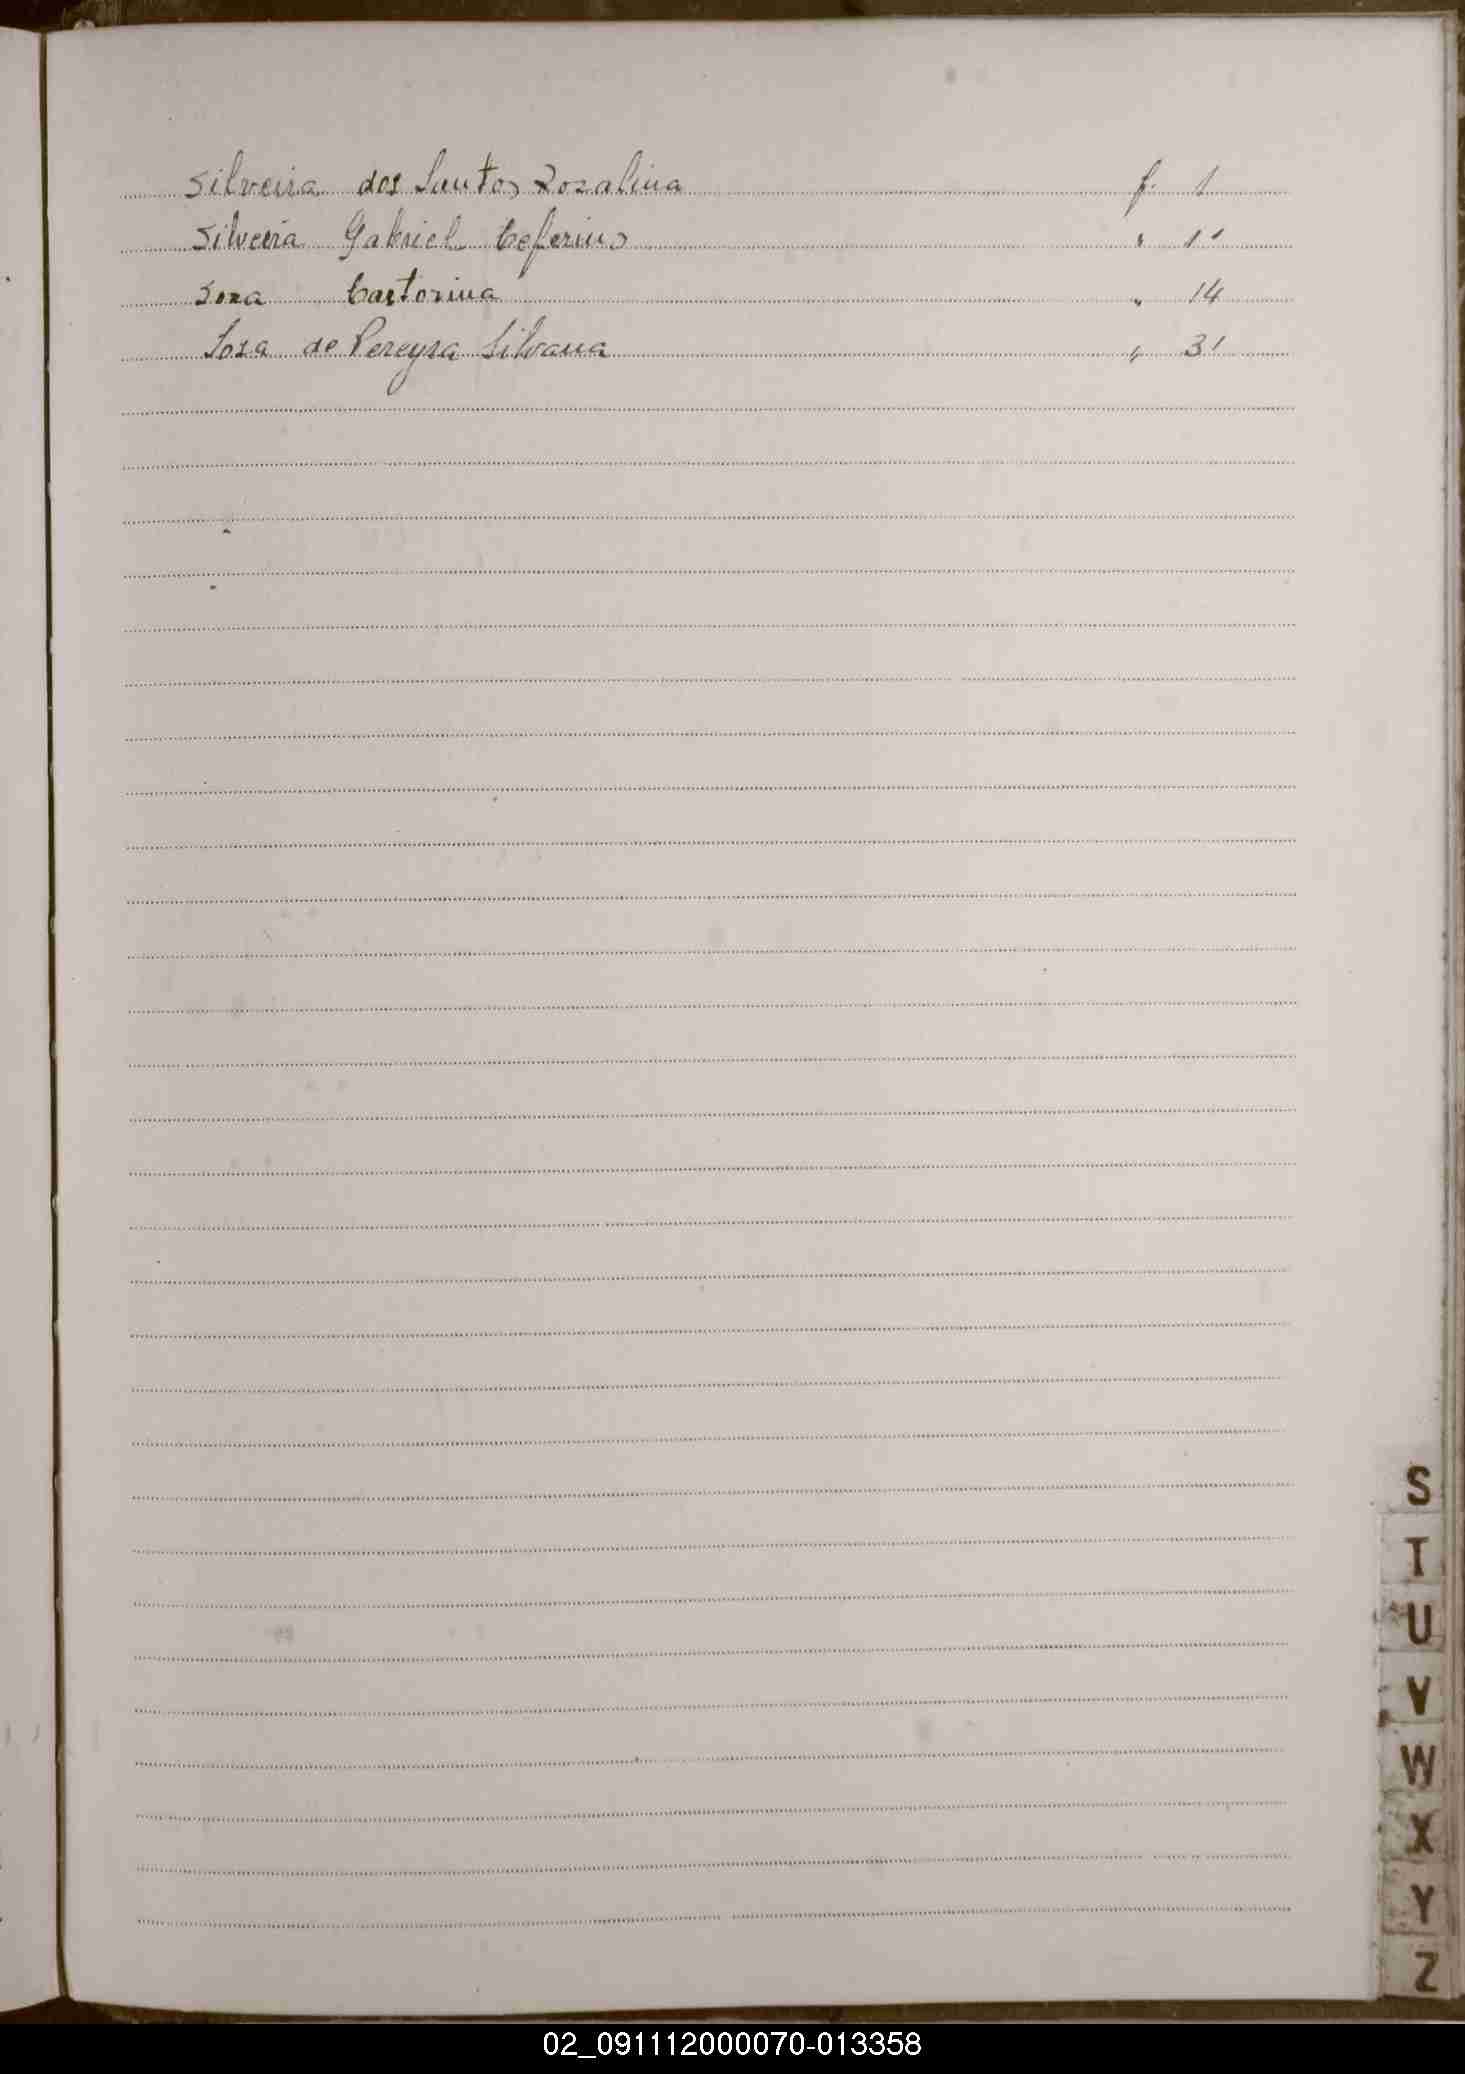 Silveira dos Santos Rozalina f. 1
Silveira Gabriel Ceferino " 11
Soza Castorina " 14
Sosa de Pereyra Silvana " 31
S
T
U
V
W
X
Y
Z
02_091112000070-013358